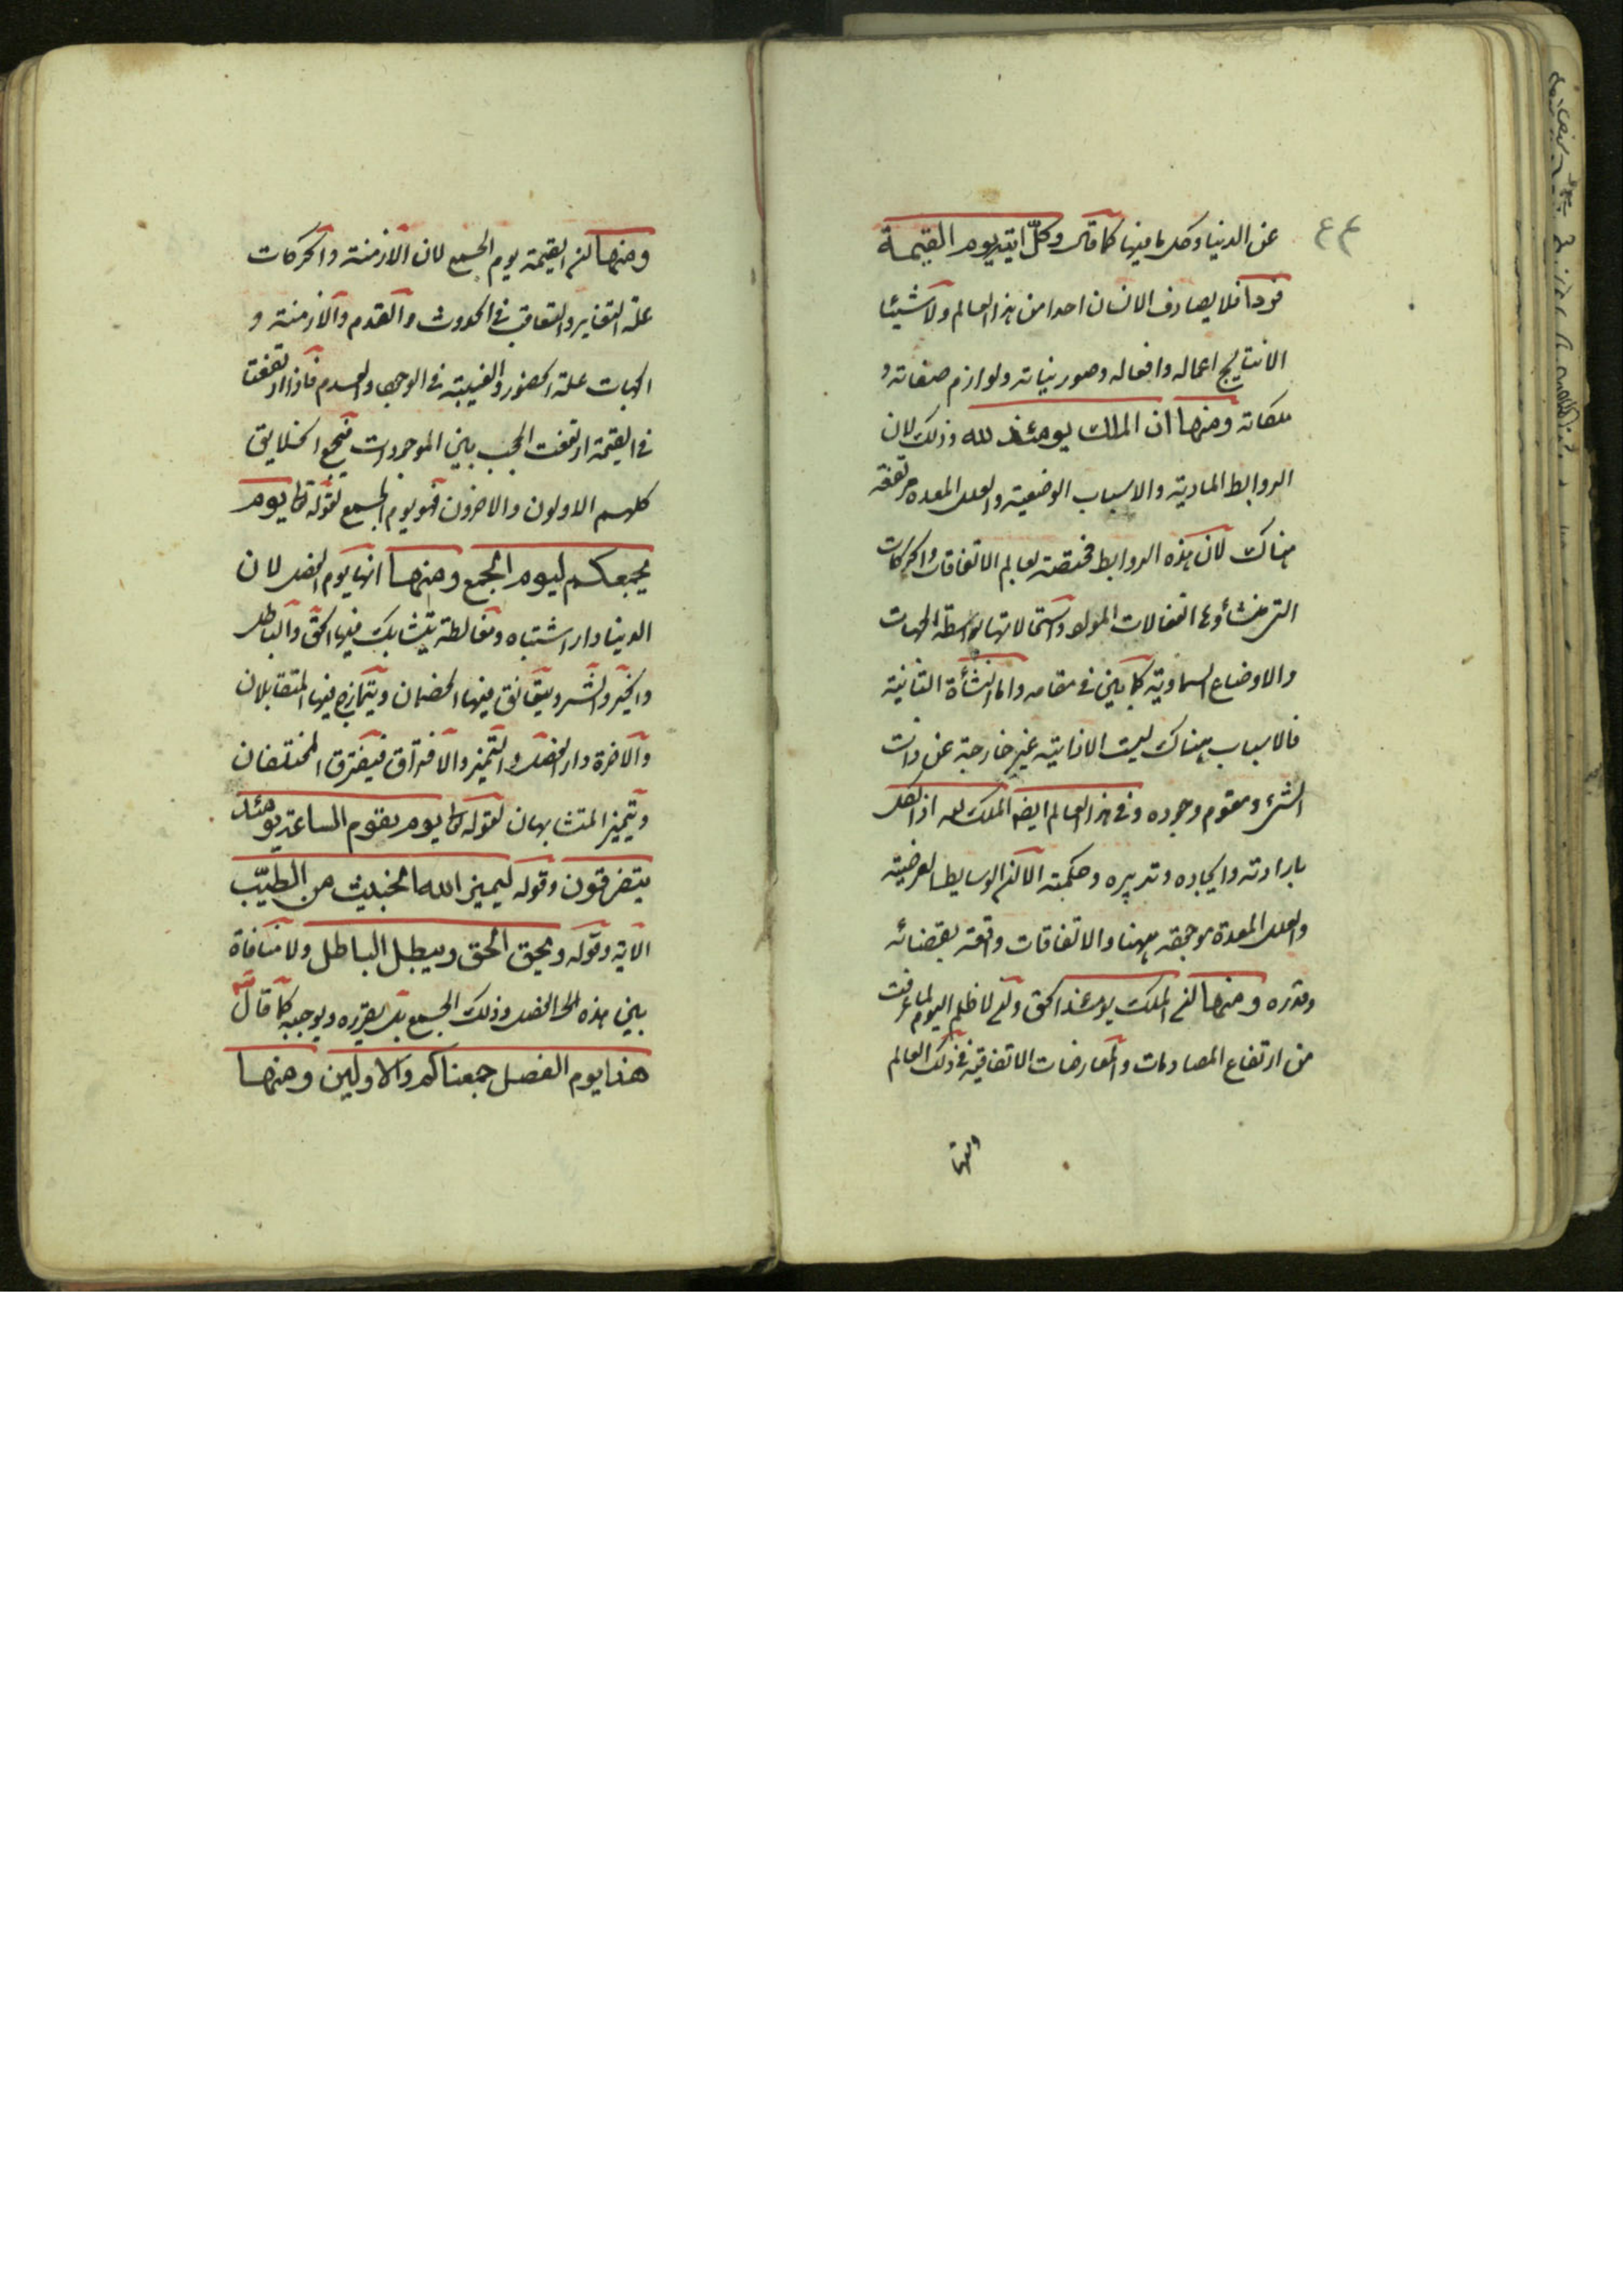 ٤٤
عن الدنيا وكل ما فيها كما قال وكلّ اتيه يوم القيمة
فردا فلا يصادف الانسان احدا من هذا العالم ولا شيئا
الا نتايج اعماله وافعاله وصور نياته ولوازم صفاته و
ملكاته ومنها ان الملك يومئذ لله وذلك لان
الروابط المادية والاسباب الوضعية والعلل المعده مرتفعة
هناك لان هذه الروابط مختصة بعالم الاتفاقات والحركات
التي منشأوها انفعالات المواد واستحالاتها بواسطة الجهات
والاوضاع السماوية كما بين في مقامه واما النشأة الثانية
فالاسباب هناك ليست الا ذاتية غير خارجة عن ذات
الشئ ومقوم وجوده وفي هذا العالم ايضا الملك لله اذ الكل
بارادته وايجاده وتدبيره وحكمته الا ان الوسايط العرضية
والعلل المعدة موجودة ههنا والاتفاقات واقعة بقضائه
وقدره ومنها ان الملك يومئذ الحق ولا ظلم اليوم لما عرفت
من ارتفاع المصادمات والمعارضات الاتفاقية في ذلك العالم
ومنها ان القيمة يوم الجمع لان الازمنة والحركات
علة التغاير والتعاقب في الحدوث والقدم والازمنة و
الجهات علة الحضور والغيبة في الوجود والعدم فاذا ارتفعت
في القيمة ارتفعت الحجب بين الموجودات فيجمع الخلايق
كلهم الاولون والاخرون فهو يوم الجمع لقوله تعا يوم
يجمعكم ليوم الجمع ومنها انها يوم الفصل لان
الدنيا دار اشتباه ومغالطة يتشابك فيها الحق والباطل
والخير والشر ويتعانق فيها الخصمان ويتمازج فيها المتقابلان
والاخرة دار الفصل والتميز والافتراق فيفترق المختلفان
ويتميز المتشابهان لقوله تعا يوم يقوم الساعة يومئذ
يتفرقون وقوله ليميز الله الخبيث من الطيّب
الاية وقوله ويحق الحق ويبطل الباطل ولا منافاة
بين هذه الفصل وذلك الجمع بل يقرره ويوجبه كما قال
هذا يوم الفصل جمعناكم والاولين ومنها